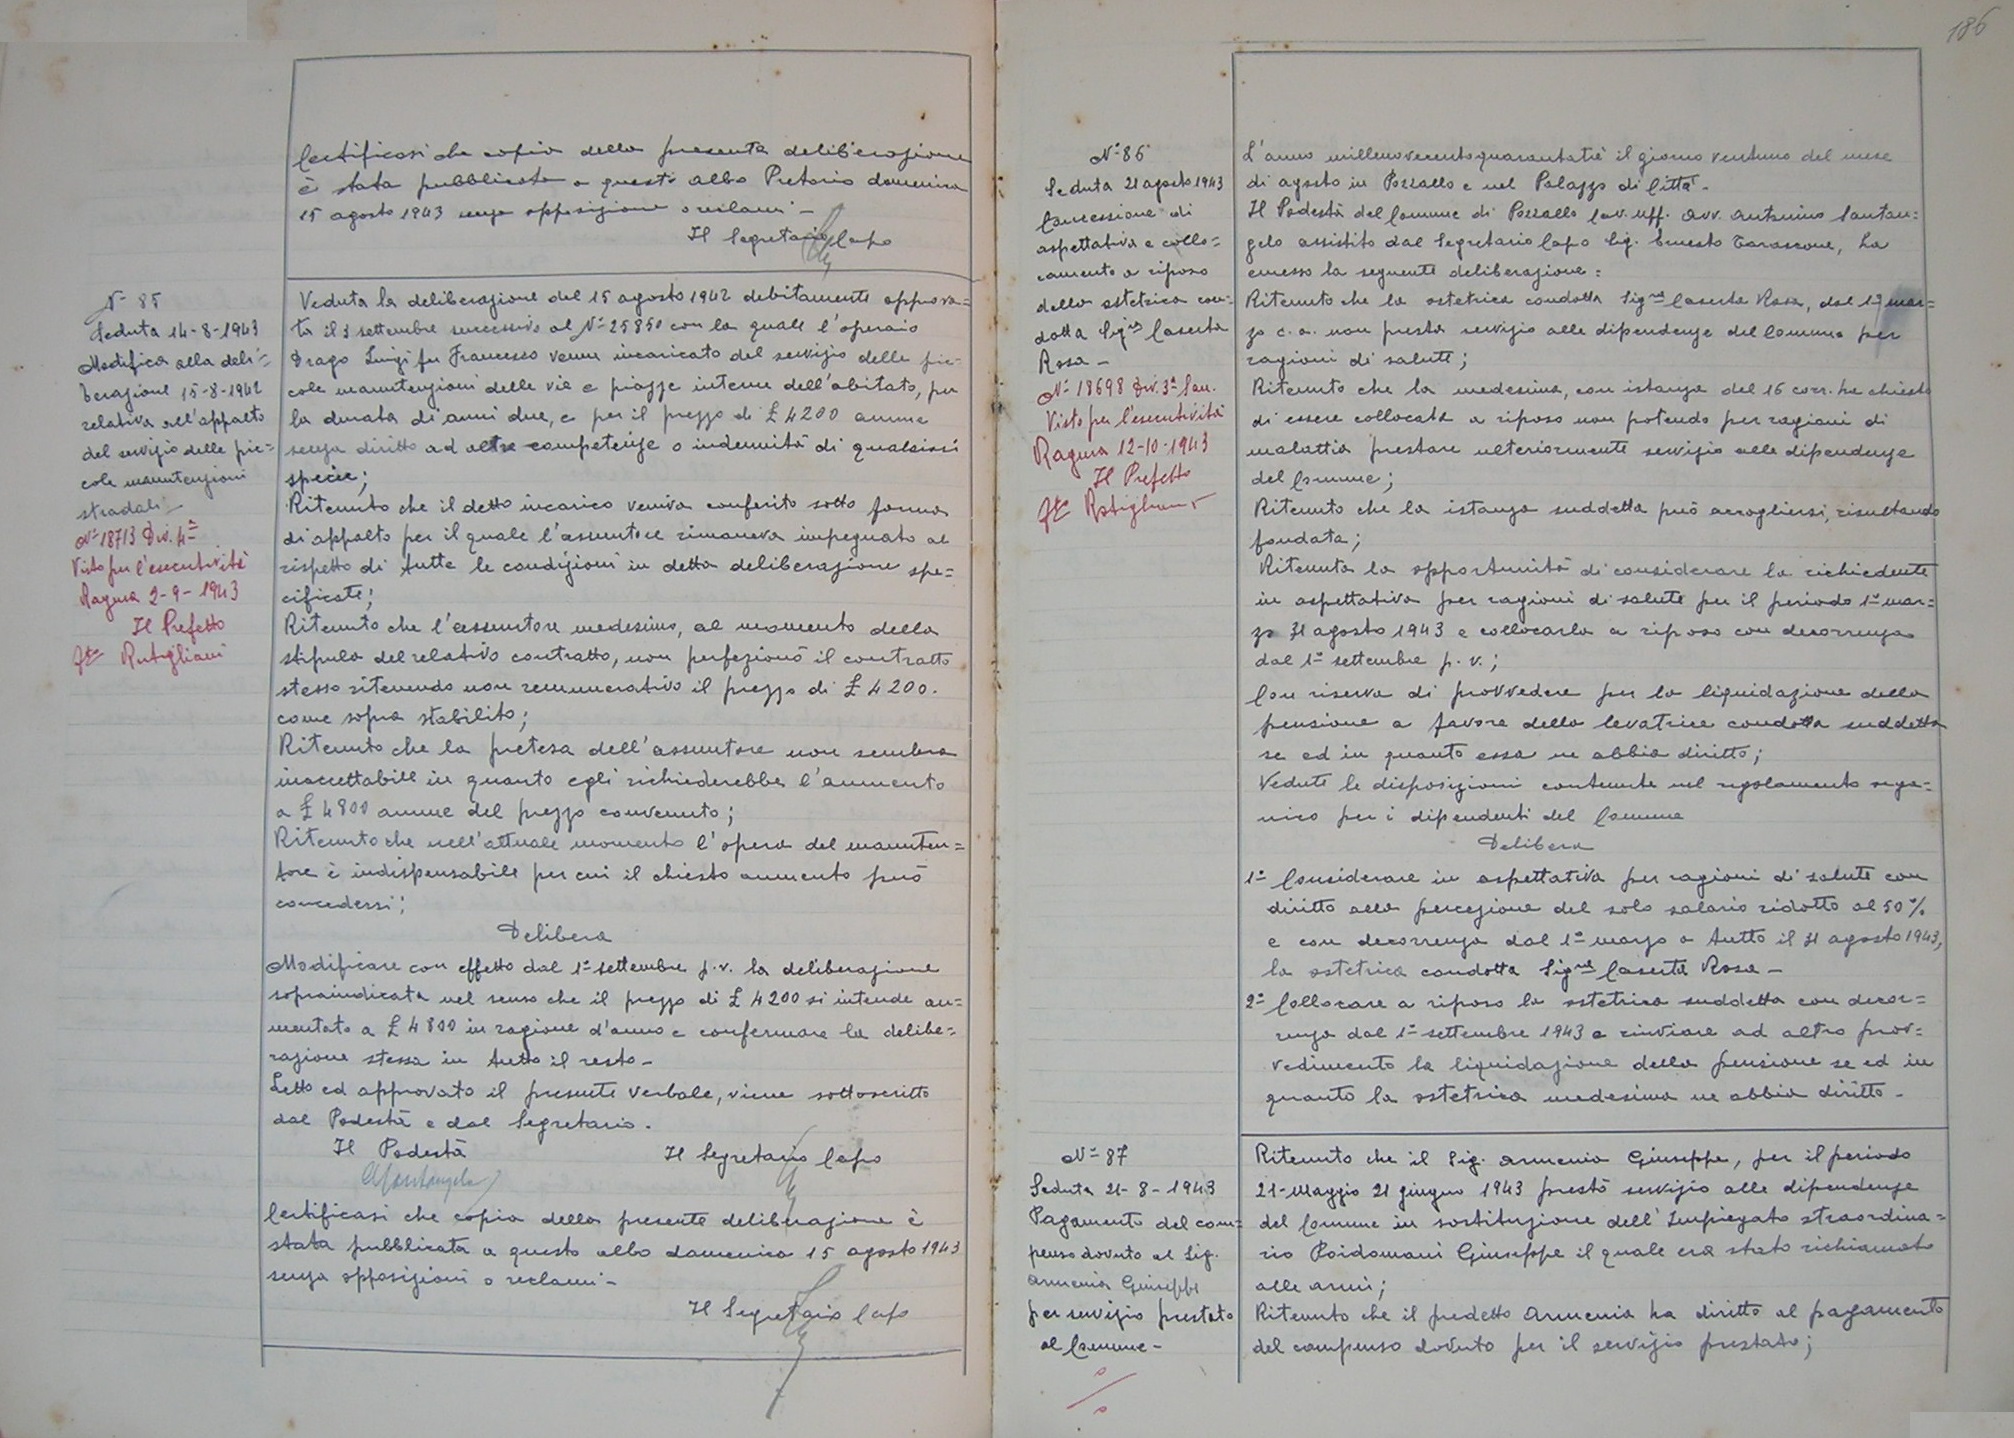 Certificasi che copia della presente deliberazione
è stata pubblicata a questo albo Pretorio domenica
15 agosto 1943 senza opposizione o reclami -
Il Segretario Capo
N° 85
Seduta 14-8-1943
Modifica alla deli=
berazione 15-8-1942
relativa all'appalto
del servizio delle pic=
cole manutenzioni
stradali -
N° 18713 Div. 4ª
Visto per l'esecutività
Ragusa 2-9-1943
Il Prefetto
fto Rutigliani
Veduta la deliberazione del 15 agosto 1942 debitamente approva=
ta il 3 settembre successivo al N° 25850 con la quale l'operaio
Drago Luigi fu Francesco venne incaricato del servizio delle pic-
cole manutenzioni delle vie e piazze interne dell'abitato, per
la durata di anni due, e per il prezzo di £ 4200 annue
senza diritto ad altre competenze o indennità di qualsiasi
specie;
Ritenuto che il detto incarico veniva conferito sotto forma
di appalto per il quale l'assuntore rimaneva impegnato al
rispetto di tutte le condizioni in detta deliberazione spe=
cificate;
Ritenuto che l'assuntore medesimo, al momento della
stipula del relativo contratto, non perfezionò il contratto
stesso ritenendo non remunerativo il prezzo di £ 4200.
come sopra stabilito;
Ritenuto che la pretesa dell'assuntore non sembra
inaccettabile in quanto egli richiederebbe l'aumento
a £ 4800 annue del prezzo convenuto;
Ritenuto che nell'attuale momento l'opera del manuten=
tore è indispensabile per cui il chiesto aumento può
concedersi;
Delibera
Modificare con effetto dal 1° settembre p.v. la deliberazione
sopraindicata nel senso che il prezzo di £ 4200 si intende au=
mentato a £ 4800 in ragione d'anno e confermare la delibe=
razione stessa in tutto il resto -
Letto ed approvato il presente verbale, viene sottoscritto
dal Podestà e dal Segretario.
Il Podestà Il Segretario Capo
ASantangelo
Certificasi che copia della presente deliberazione è
stata pubblicata a questo albo domenica 15 agosto 1943
senza opposizioni o reclami -
Il Segretario Capo
186
N° 86
Seduta 21 agosto 1943
Concessione di
aspettativa e collo=
camento a riposo
della ostetrica con-
dotta Sigra Caserta
Rosa -
N° 18698 Div. 3ª San.
Visto per l'esecutività
Ragusa 12-10-1943
Il Prefetto
fto Rutigliani
L'anno millenovecentoquarantatrè il giorno ventuno del mese
di agosto in Pozzallo e nel Palazzo di Città -
Il Podestà del Comune di Pozzallo Cav. Uff. Avv. Antonino Santan=
gelo assistito dal Segretario Capo Sig. Ernesto Tarascone, ha
emesso la seguente deliberazione:
Ritenuto che la ostetrica condotta Sigra Caserta Rosa, dal 1° mar=
zo c.a. non presta servizio alle dipendenze del Comune per
ragioni di salute;
Ritenuto che la medesima, con istanza del 16 corr. ha chiesto
di essere collocata a riposo non potendo per ragioni di
malattia prestare ulteriormente servizio alle dipendenze
del Comune;
Ritenuto che la istanza suddetta può accogliersi, risultando
fondata;
Ritenuta la opportunità di considerare la richiedente
in aspettativa per ragioni di salute per il periodo 1° mar=
zo 31 agosto 1943 e collocarla a riposo con decorrenza
dal 1° settembre p.v.;
Con riserva di provvedere per la liquidazione della
pensione a favore della levatrice condotta suddetta
se ed in quanto essa ne abbia diritto;
Vedute le disposizioni contenute nel regolamento orga=
nico per i dipendenti del Comune
Delibera
1° Considerare in aspettativa per ragioni di salute con
diritto alla percezione del solo salario ridotto al 50%
e con decorrenza dal 1° marzo a tutto il 31 agosto 1943,
la ostetrica condotta Sigra Caserta Rosa -
2° Collocare a riposo la ostetrica suddetta con decor=
renza dal 1° settembre 1943 e rinviare ad altro prov=
vedimento la liquidazione della pensione se ed in
quanto la ostetrica medesima ne abbia diritto -
N° 87
Seduta 21-8-1943
Pagamento del com=
penso dovuto al Sig.
Armenia Giuseppe
per servizio prestato
al Comune -
Ritenuto che il Sig. Armenia Giuseppe, per il periodo
21-Maggio 21 giugno 1943 prestò servizio alle dipendenze
del Comune in sostituzione dell'Impiegato straordina=
rio Poidomani Giuseppe il quale era stato richiamato
alle armi;
Ritenuto che il predetto Armenia ha diritto al pagamento
del compenso dovuto per il servizio prestato;